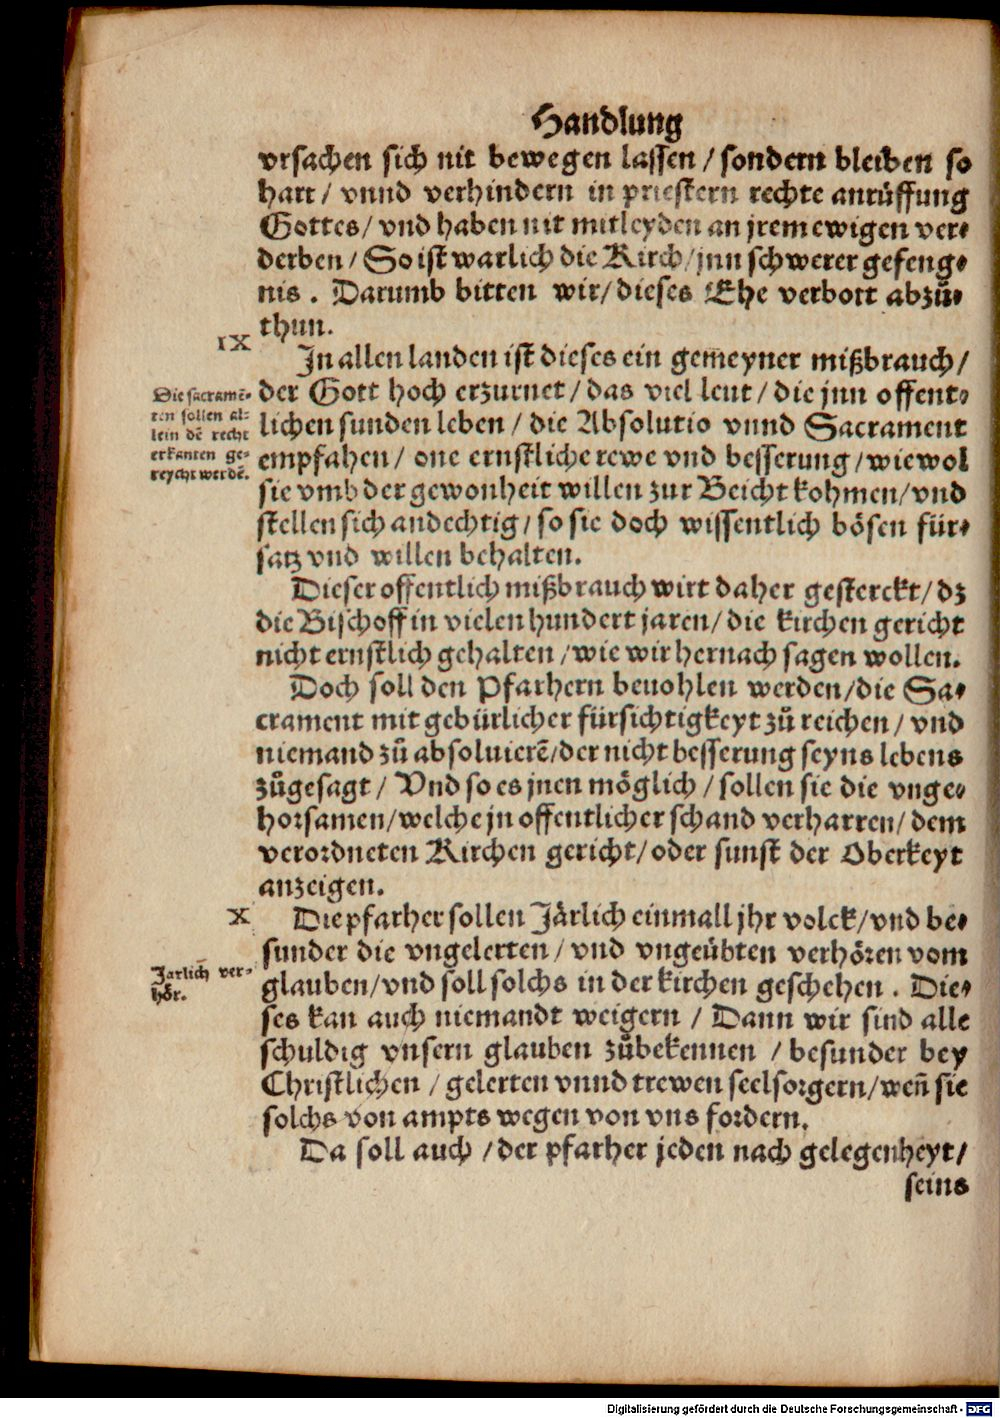 Handlung
vrsachen sich nit bewegen lassen / sondern bleiben so
hart / vnnd verhindern in priestern rechte anrüffung
Gottes / vnd haben nit mitleyden an jrem ewigen ver⸗
derben / So ist warlich die Kirch / jnn schwerer gefeng⸗
nis . Darumb bitten wir / dieses Ehe verbott abzů⸗
thun.
IX
In allen landen ist dieses ein gemeyner mißbrauch /
der Gott hoch erzurnet / das viel leut / die jnn offent⸗
lichen sunden leben / die Absolutio vnnd Sacrament
empfahen / one ernstliche rewe vnd besserung / wiewol
sie vmb der gewonheit willen zur Beicht kohmen / vnd
stellen sich andechtig / so sie doch wissentlich bösen für⸗
satz vnd willen behalten.
Die sacramē⸗
ten sollen al⸗
lein dē recht
erkanten ge⸗
reycht werdē.
Dieser offentlich mißbrauch wirt daher gesterckt / dz
die Bischoff in vielen hundert jaren / die kirchen gericht
nicht ernstlich gehalten / wie wir hernach sagen wollen.
Doch soll den Pfarhern beuohlen werden / die Sa⸗
crament mit gebürlicher fürsichtigkeyt zů reichen / vnd
niemand zů absoluierē / der nicht besserung seyns lebens
zůgesagt / Vnd so es jnen möglich / sollen sie die vnge⸗
horsamen / welche jn offentlicher schand verharren / dem
verordneten Kirchen gericht / oder sunst der Oberkeyt
anzeigen.
X
Die pfarher sollen Järlich einmall jhr volck / vnd be⸗
sunder die vngelerten / vnd vngeübten verhören vom
glauben / vnd soll solchs in der kirchen geschehen . Die⸗
ses kan auch niemandt weigern / Dann wir sind alle
schuldig vnsern glauben zůbekennen / besunder bey
Christlichen / gelerten vnnd trewen seelsorgern / weñ sie
solchs von ampts wegen von vns fordern.
Jarlich ver⸗
hör.
Da soll auch / der pfarher jeden nach gelegenheyt /
seins
Digitalisierung gefördert durch die Deutsche Forschungsgemeinschaft - DFG